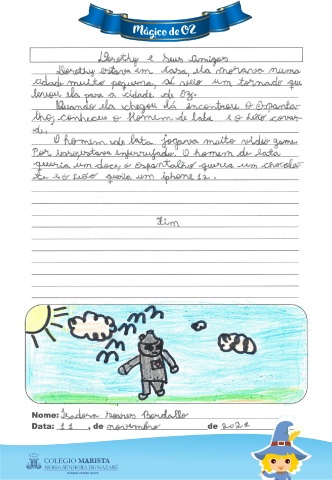 Mágico de OZ
Dorothy e Seus Amigos
Dorothy estava em casa, ela morava numa
cidade muito pequena, aí veio um tornado que
levou ela para a cidade de Oz.
Quando ela chegou lá encontrou o Espanta-
lho, conheceu o Homem de lata e o Leão covar-
de.
O homem de lata jogava muito vídeo game.
Por isso, estava enferrujado. O homem de lata
queria um doce, o espantalho queria um chocola-
te e o Leão queria um iphone 12.
Fim
Nome: Isadora Soares Bordallo
Data: 11, de novembro de 2021
COLÉGIO MARISTA
NOSSA SENHORA DE NAZARÉ